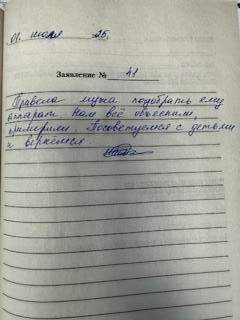 01. июля 25.
Заявление № 41
Привела мужа подобрать ему
аппарат. Нам всё объяснили,
примерили. Посоветуемся с детьми
и вернёмся.